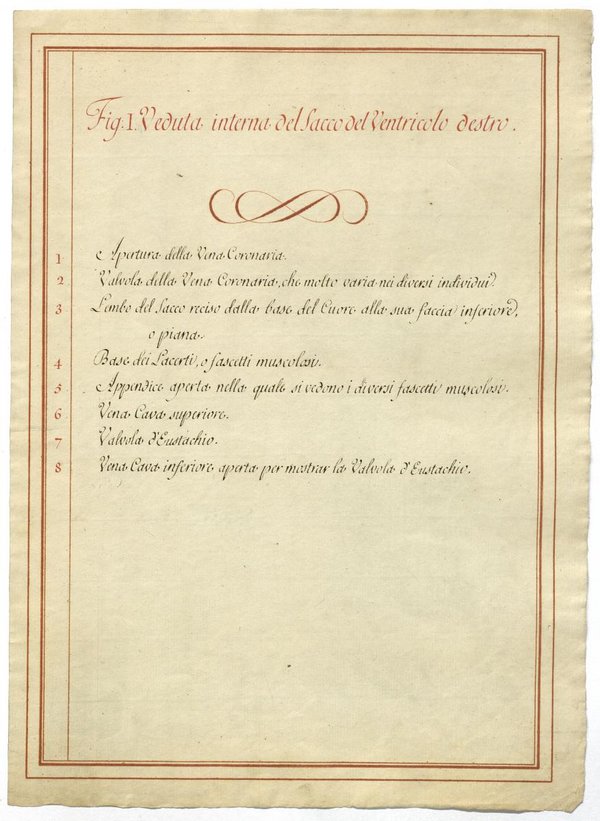 Fig. I. Veduta interna del Sacco del Ventricolo destro.
1 Apertura della Vena Coronaria.
2 Valvola della Vena Coronaria, che molto varia nei diversi individui.
3 Lembo del Sacco reciso dalla base del Cuore alla sua faccia inferiore,
o piana.
4 Base dei Lacerti, o fascetti muscolosi.
5 Appendice aperta nella quale si vedono i diversi fascetti muscolosi.
6 Vena Cava superiore.
7 Valvola d'Eustachio.
8 Vena Cava inferiore aperta per mostrar la Valvola d'Eustachio.